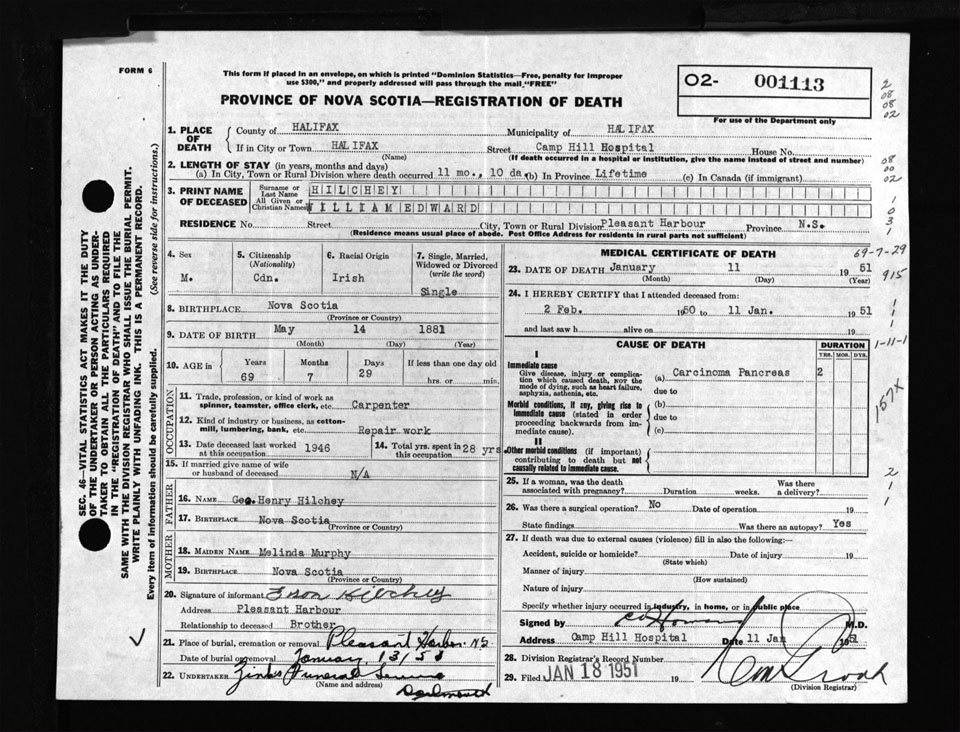 FORM 6
This form if placed in an envelope, on which is printed "Dominion Statistics—Free, penalty for improper
use $300," and properly addressed will pass through the mail "FREE"
PROVINCE OF NOVA SCOTIA—REGISTRATION OF DEATH
O2- 001113
For use of the Department only
2
08
08
02
08
00
02
1
0
3
1
69-7-29
915
1
1
1
1-11-1
157X
2
1
1
SEC. 46—VITAL STATISTICS ACT MAKES IT THE DUTY
OF THE UNDERTAKER OR PERSON ACTING AS UNDER-
TAKER TO OBTAIN ALL THE PARTICULARS REQUIRED
IN THE "REGISTRATION OF DEATH" AND TO FILE THE
SAME WITH THE DIVISION REGISTRAR WHO SHALL ISSUE THE BURIAL PERMIT.
WRITE PLAINLY WITH UNFADING INK. THIS IS A PERMANENT RECORD.
Every item of information should be carefully supplied. (See reverse side for instructions.)
1. PLACE OF DEATH
County of HALIFAX Municipality of HALIFAX
If in City or Town HALIFAX Street Camp Hill Hospital House No.
(Name) (If death occurred in a hospital or institution, give the name instead of street and number)
2. LENGTH OF STAY (in years, months and days)
(a) In City, Town or Rural Division where death occurred 11 mo., 10 da. (b) In Province Lifetime (c) In Canada (if immigrant)
3. PRINT NAME OF DECEASED
Surname or Last Name HILCHEY
All Given or Christian Names WILLIAM EDWARD
RESIDENCE No. Street City, Town or Rural Division Pleasant Harbour Province N.S.
(Residence means usual place of abode. Post Office Address for residents in rural parts not sufficient)
4. Sex
M.
5. Citizenship
(Nationality)
Cdn.
6. Racial Origin
Irish
7. Single, Married,
Widowed or Divorced
(write the word)
Single
8. BIRTHPLACE Nova Scotia
(Province or Country)
9. DATE OF BIRTH May 14 1881
(Month) (Day) (Year)
10. AGE in Years Months Days If less than one day old
69 7 29 hrs. or min.
OCCUPATION
11. Trade, profession, or kind of work as
spinner, teamster, office clerk, etc. Carpenter
12. Kind of industry or business, as cotton-
mill, lumbering, bank, etc. Repair work
13. Date deceased last worked
at this occupation 1946
14. Total yrs. spent in
this occupation 28 yrs
15. If married give name of wife
or husband of deceased N/A
FATHER
16. NAME Geo. Henry Hilchey
17. BIRTHPLACE Nova Scotia
(Province or Country)
MOTHER
18. MAIDEN NAME Melinda Murphy
19. BIRTHPLACE Nova Scotia
(Province or Country)
20. Signature of informant Hilchey
Address Pleasant Harbour
Relationship to deceased Brother
21. Place of burial, cremation or removal Pleasant Harbor. NS
Date of burial or removal January 13/51
22. UNDERTAKER Zinks Funeral Service
(Name and address) Dartmouth
MEDICAL CERTIFICATE OF DEATH
23. DATE OF DEATH January 11 1951
(Month) (Day) (Year)
24. I HEREBY CERTIFY that I attended deceased from:
2 Feb. 1950 to 11 Jan. 1951
and last saw h alive on 19
CAUSE OF DEATH
DURATION
YRS. MOS. DYS.
I
Immediate cause
Give disease, injury or complica-
tion which caused death, NOT the
mode of dying, such as heart failure,
asphyxia, asthenia, etc.
(a) Carcinoma Pancreas 2
due to
Morbid conditions, if any, giving rise to
immediate cause (stated in order
proceeding backwards from im-
mediate cause).
(b)
due to
(c)
II
Other morbid conditions (if important)
contributing to death but not
causally related to immediate cause.
25. If a woman, was the death
associated with pregnancy? Duration weeks. Was there
a delivery?
26. Was there a surgical operation? No Date of operation 19
State findings Was there an autopsy? Yes
27. If death was due to external causes (violence) fill in also the following:—
Accident, suicide or homicide? Date of injury 19
(State which)
Manner of injury
(How sustained)
Nature of injury
Specify whether injury occurred in industry, in home, or in public place
Signed by Howard M.D.
Address Camp Hill Hospital Date 11 Jan 1951
28. Division Registrar's Record Number
29. Filed JAN 18 1951 19
(Division Registrar)